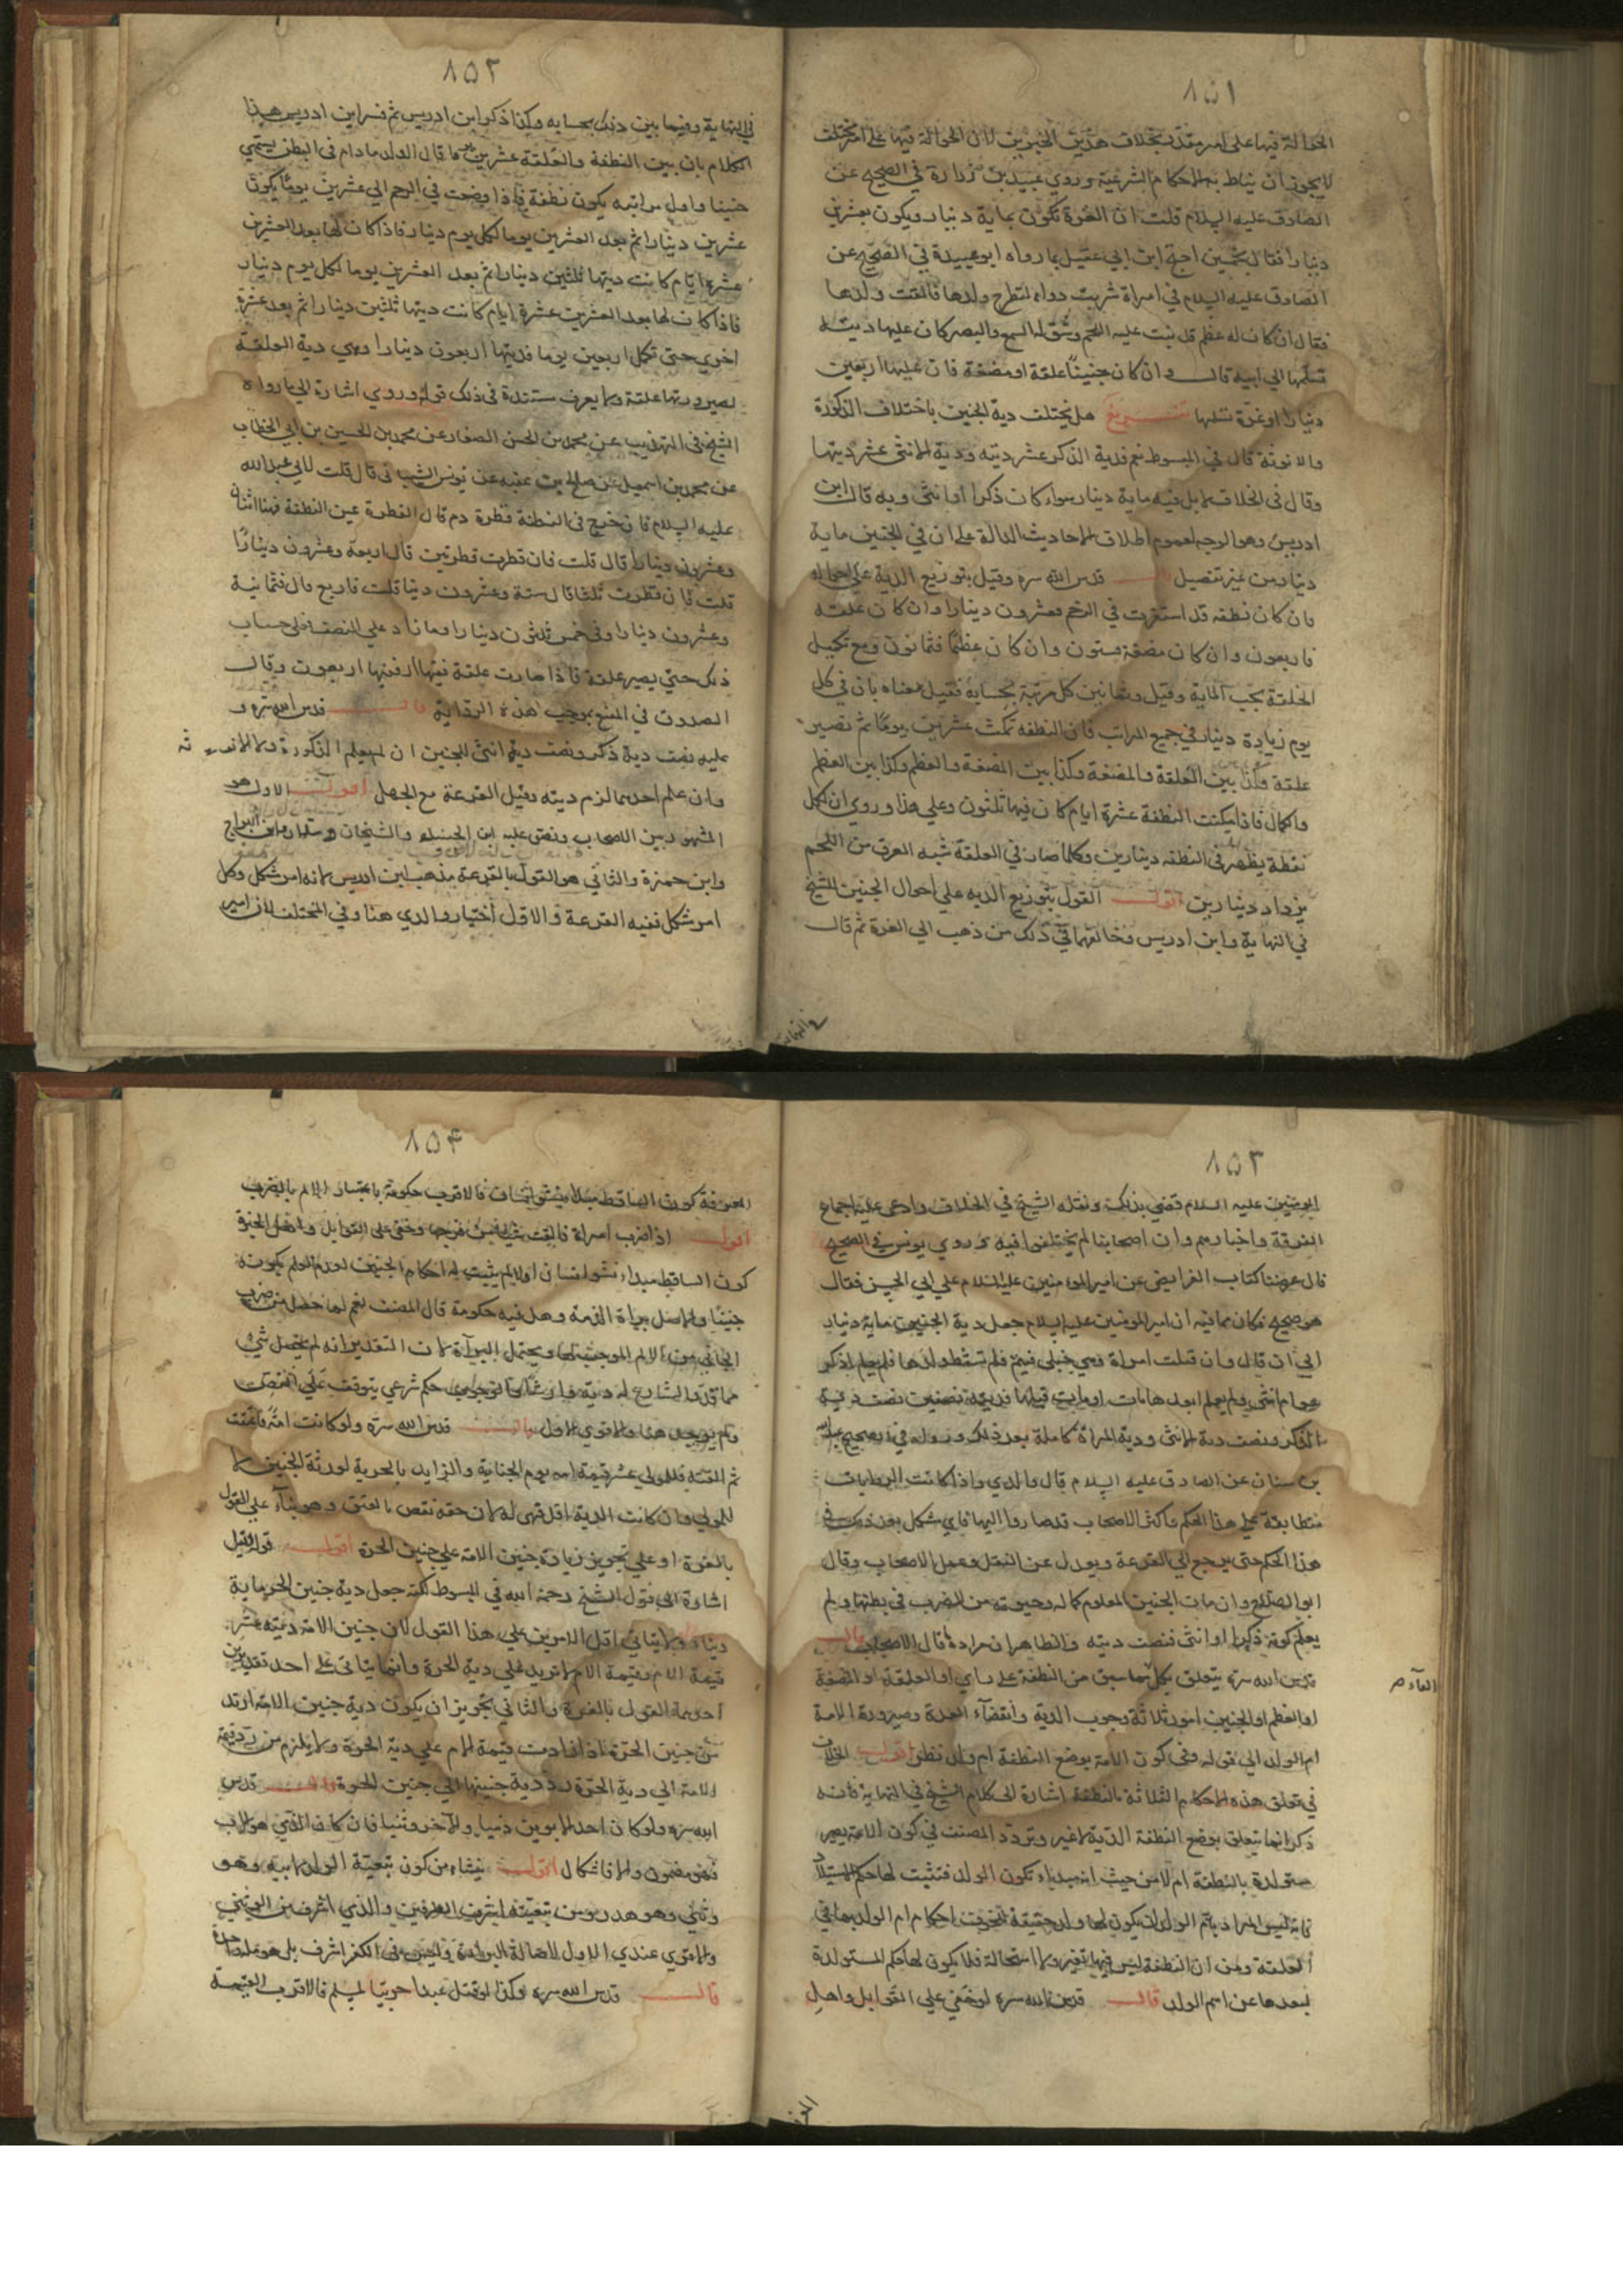 ٨٥١
الحوالة فيها على امر مقدر بخلاف هذين الخبرين لان الحوالة فيها على امر مختلف
لا يجوز ان يناط به الاحكام الشرعية وروي عبيد بن زرارة في الصحيح عن
الصادق عليه السلام قلت ان الغرة تكون بماية دينار ويكون بعشرين
دينارا فقال بخمسين احتج ابن ابي عقيل بما رواه ابو عبيدة في الصحيح عن
الصادق عليه السلام في امراة شربت دواء لتطرح ولدها فالقت ولدها
فقال ان كان له عظم قد نبت عليه اللحم وشق له السمع والبصر كان عليها ديته
تسلمها الى ابيه قال وان كان جنينا علقة او مضغة فان عليها اربعين
دينارا او غرة تسلمها تفريع هل يختلف دية الجنين باختلاف الذكورة
والانوثة قال في المبسوط نعم فدية الذكر عشر ديته ودية الانثى عشر ديتها
وقال في الخلاف لا بل فيه ماية دينار سواء كان ذكرا او انثى وبه قال ابن
ادريس وهو الوجه لعموم اطلاق الاحاديث الدالة على ان في الجنين ماية
دينار من غير تفصيل قال قدس الله سره وقيل بتوزيع الدية على احواله
فان كان نطفه قد استقرت في الرحم فعشرون دينارا وان كان علقه
فاربعون وان كان مضغة فستون وان كان عظما فثمانون ومع تكميل
الخلقة يجب الماية وقيل وفيما بين كل مرتبة بحسابه فقيل معناه بان في كل
يوم زيادة دينار في جميع المراتب فان النطفه تمكث عشرين يوما ثم تصير
علقة وكذا بين العلقة والمضغة وكذا بين المضغة والعظم وكذا بين العظم
والكمال فاذا مكثت النطفة عشرة ايام كان فيها ثلثون وعلى هذا وروي ان لكل
نقطة يظهر في النطفه دينارين وكلما صار في العلقة شبه العرق من اللحم
يزداد دينارين اقول القول بتوزيع الديه على احوال الجنين للشيخ
في النهاية وابن ادريس وخالفهما في ذلك من ذهب الى الغرة ثم قال
في النهاية
٨٥٢
في النهاية وفيما بين ذلك بحسابه وكذا ذكر ابن ادريس ثم فسر ابن ادريس هذا
الكلام بان بين النطفة والعلقة عشرين يوما قال الولد ما دام في البطن يسمى
جنينا واول مراتبه يكون نطفة فاذا وضعت في الرحم الى عشرين يوما يكون
عشرين دينارا ثم بعد العشرين يوما لكل يوم دينار فاذا كان لها بعد العشرين
عشرة ايام كانت ديتها ثلثين دينارا ثم بعد العشرين يوما لكل يوم دينار
فاذا كان لها بعد العشرين عشرة ايام كانت ديتها ثلثين دينارا ثم بعد عشرة
اخرى حتى تكمل اربعين يوما فديتها اربعون دينارا وهي دية العلقة
لصيرورتها علقة ولم يعرف مستنده في ذلك قوله وروي اشارة الى ما رواه
الشيخ في التهذيب عن محمد بن الحسن الصفار عن محمد بن الحسين بن ابي الخطاب
عن محمد بن اسمعيل عن صالح بن عقبه عن يونس الشيباني قال قلت لابي عبد الله
عليه السلام فان خرج في النطفة قطرة دم قال القطرة عشر النطفة فيها اثنان
وعشرون دينارا قال قلت فان قطرت قطرتين قال اربعة وعشرون دينارا
قلت فان قطرت ثلثا قال ستة وعشرون دينارا قلت فاربع قال فثمانية
وعشرون دينارا وفي خمس ثلثون دينارا وما زاد على النصف فعلى حساب
ذلك حتى يصير علقة فاذا صارت علقة ففيها اربعون وقال
الصدوق في المقنع بموجب هذه الرواية قال قدس الله سره و
عليه نصف دية ذكر ونصف دية انثى للجنين ان لم يعلم الذكورة ولا الانوثه
وان علم احدهما لزم ديته وقيل القرعة مع الجهل اقول الاول هو
المشهور بين الاصحاب ونص عليه ابن الجنيد والشيخان وسلار وابن البراج
وابن حمزة والثاني هو القول بالقرعة مذهب ابن ادريس لانه امر مشكل وكل
امر مشكل ففيه القرعة والاول اختيار والدي هنا وفي المختلف لان امير
٨٥٣
المؤمنين عليه السلام قضى بذلك ونقله الشيخ في الخلاف وادعى عليه اجماع
الفرقة واخبارهم وان اصحابنا لم يختلفوا فيه وروي يونس في الصحيح
قال عرضنا كتاب الفرايض عن امير المؤمنين عليه السلام على ابي الحسن فقال
هو صحيح فكان مما فيه ان امير المؤمنين عليه السلام جعل دية الجنين ماية دينار
الى ان قال وان قتلت امراة وهي حبلى فتم فلم تسقط ولدها فلم يعلم اذكر
هو ام انثى ولم يعلم ابعدها مات او مات قبلها فديته نصفين نصف دية
الذكر ونصف دية الانثى ودية المراة كاملة بعد ذلك ورواه في الصحيح عبد الله
بن سنان عن الصادق عليه السلام قال والدي واذا كانت الروايات
متطابقة على هذا الحكم واكثر الاصحاب قد صاروا اليها فاي مشكل بعد ذلك في
هذا الحكم حتى يرجع الى القرعة ويعدل عن النقل وعمل الاصحاب وقال
ابو الصلاح وان مات الجنين المعلوم كماله وحيوته من الضرب في بطنها ولم
يعلم كونه ذكرا او انثى فنصف ديته والظاهر ان مراده ما قال الاصحاب قال
قدس الله سره يتعلق بكل مما سبق من النطفة على راي او العلقة او المضغة
او العظم او الجنين امور ثلاثة وجوب الدية وانقضآء العدة وصيرورة الامة
ام الولد الى قوله وفي كون الامة بوضع النطفة ام ولد نظر اقول الخلاف
في تعلق هذه الاحكام الثلاثة بالنطفة اشارة الى كلام الشيخ في النهاية فانه
ذكر انما يتعلق بوضع النطفة الدية لا غير وتردد المصنف في كون الامة تصير
مستولدة بالنطفة ام لا من حيث انه مبداء تكون الولد فتثبت لها حكم الاستيلاد
فانه ليس المراد بام الولد ان يكون لها ولد حقيقة لتحقق احكام ام الولد بها في
العلقة ومن ان النطفة ليس فيها تغير ولا استحالة فلا يكون لها حكم المستولدة
لبعدها عن اسم الولد قال قدس الله سره لو خفي على القوابل واهل
٨٥٤
المعرفة كون الساقط مبدا نشو انسان فالاقرب حكومة باعتبار الالم بالضرب
اقول اذا ضرب امراة فالقت شيئا من فرجها وخفي على القوابل واهل الخبرة
كون الساقط مبداء نشو انسان او لا لم يثبت له احكام الجنين لعدم العلم بكونه
جنينا والاصل براة الذمه وهل فيه حكومة قال المصنف نعم لما حصل من ضرب
الجاني من الالم الموجب لها ويحتمل البراة لان التقدير انه لم يحصل شئ
مما قدر الشارع له دية
ولم يوجد هنا والاقوى الاول قال قدس الله سره ولو كانت امة فاعتقت
ثم القته فللمولى عشر قيمة امه يوم الجناية والزايد بالحرية لورثة الجنين لا
للمولى وان كانت الدية اقل فهي له لان حقه نقص بالعتق وهو بناء على القول
بالغرة او على تجويز زيادة جنين الامة على جنين الحرة اقول قوله قيل
اشارة الى قول الشيخ رحمه الله في المبسوط لكنه جعل دية جنين الحر ماية
دينار ولا يتاتى اقل الامرين على هذا القول لان جنين الامة ديته عشر
قيمة الام وقيمة الام لا تزيد على دية الحرة وانما يتاتى على احد تقديرين
احدهما القول بالغرة والثاني تجويز ان يكون دية جنين الامة ازيد
من جنين الحرة اذا زادت قيمة الام على دية الحرة ولا يلزم من رد قيمة
الامة الى دية الحرة رد دية جنينها الى جنين الحرة قال قدس
الله سره ولو كان احد الابوين ذميا والآخر وثنيا فان كان الذمي هو الاب
فهو مضمون والا فاشكال اقول ينشاء من كون تبعية الولد لابيه وهو
وثني وهو هدر ومن تبعيته اشرف الطرفين والذمي اشرف من الوثني
والاقوى عندي الاول لاصالة البراءة وليس في الكفر اشرف بل هو
قال قدس الله سره وكذا لو قتل عبدا حربيا لمسلم فالاقرب القيمة